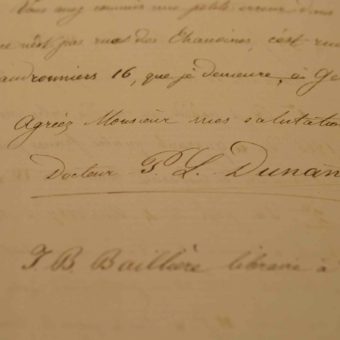 Vous avez commis une petite erreur dans
ce n'est pas rue des Chanoines, c'est rue
audronniers 16, que je demeure, à Ge
Agréez Monsieur mes salutation
Docteur P. L. Dunan
J B Baillière libraire à